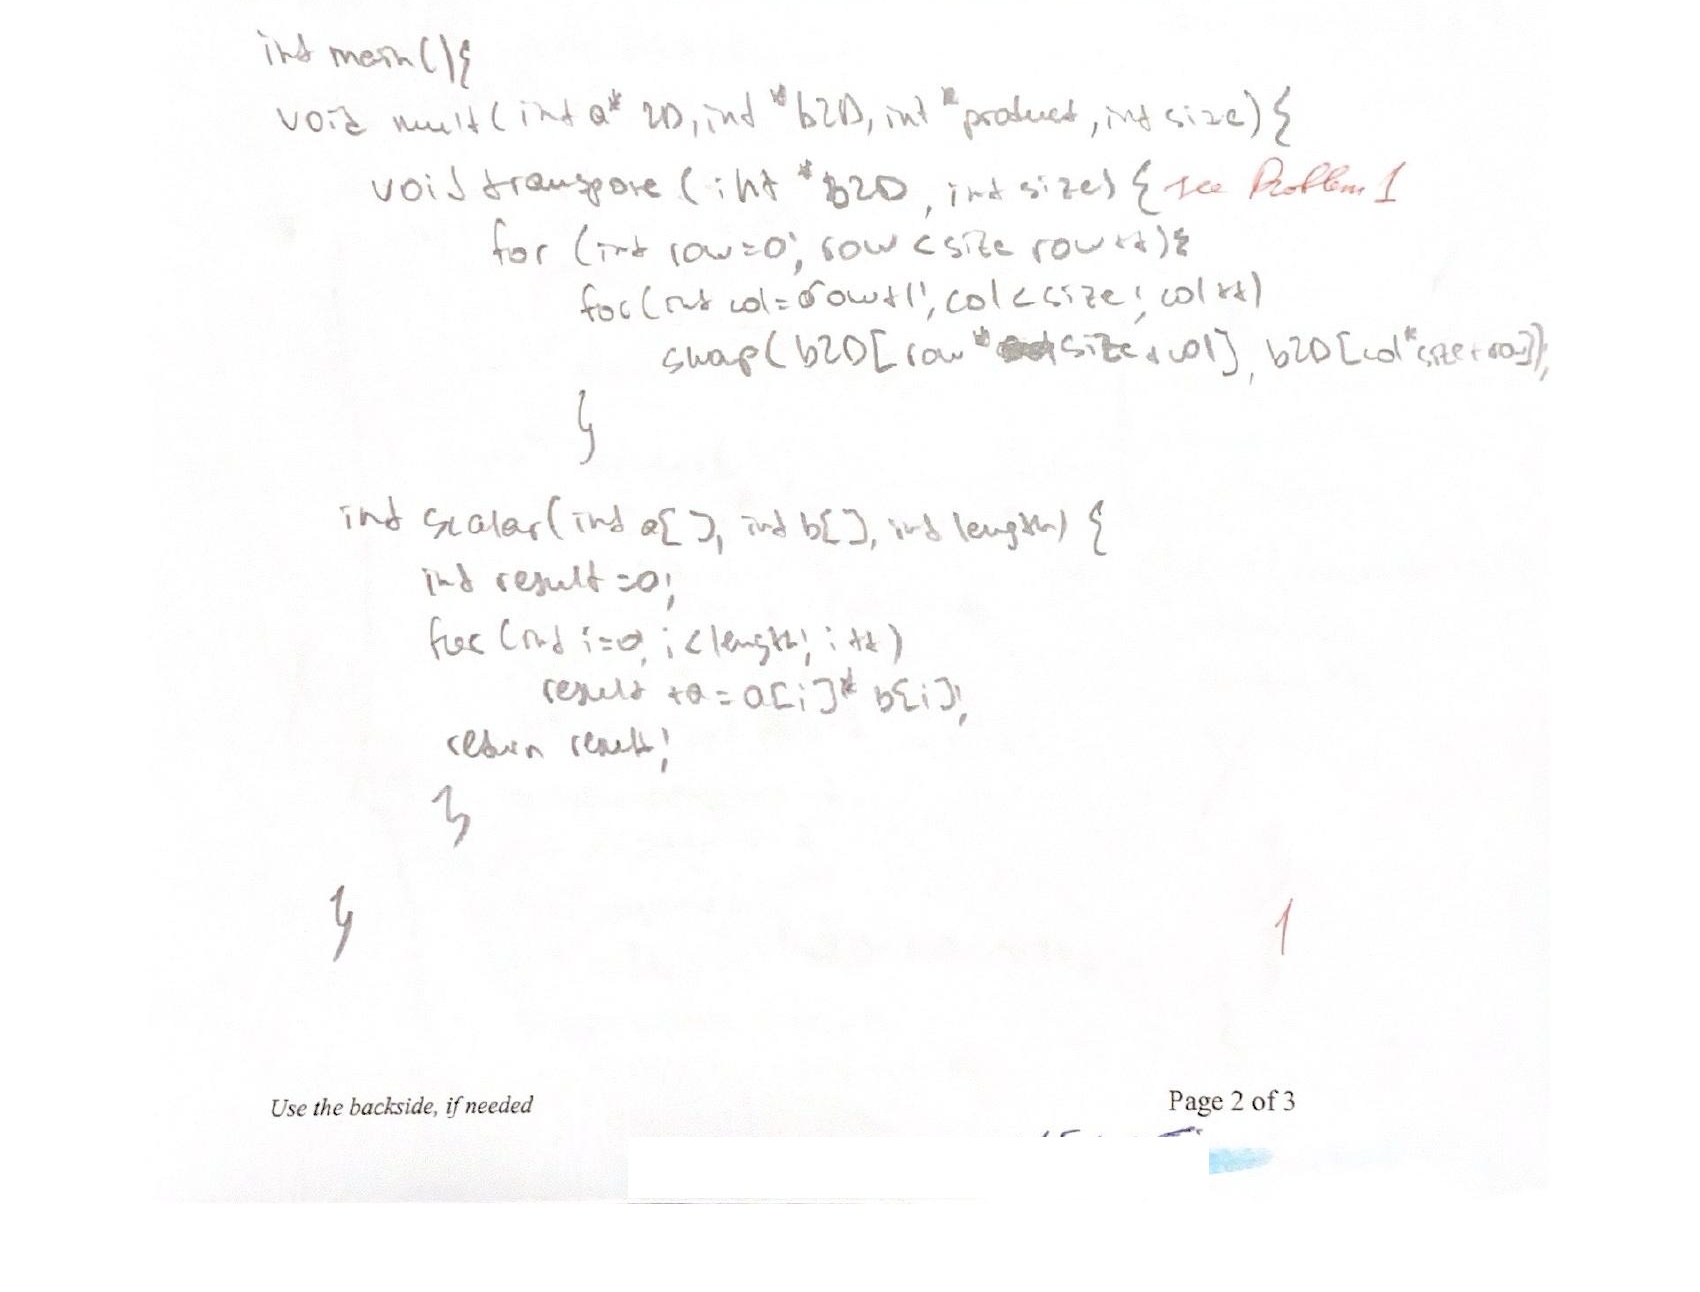 int main(){
void mult(int a* 2D, int *b2D, int *product, int size){
void transpose (int *b2D, int size) { see Problem 1
for (int row=0; row < size row++){
for(int col=row+1; col<size; col++)
swap(b2D[row*size+col], b2D[col*size+row]);
}
int scalar(int a[], int b[], int length) {
int result=0;
for (int i=0; i<length; i++)
result +a=a[i]* b[i];
return result;
}
}
1
Use the backside, if needed
Page 2 of 3